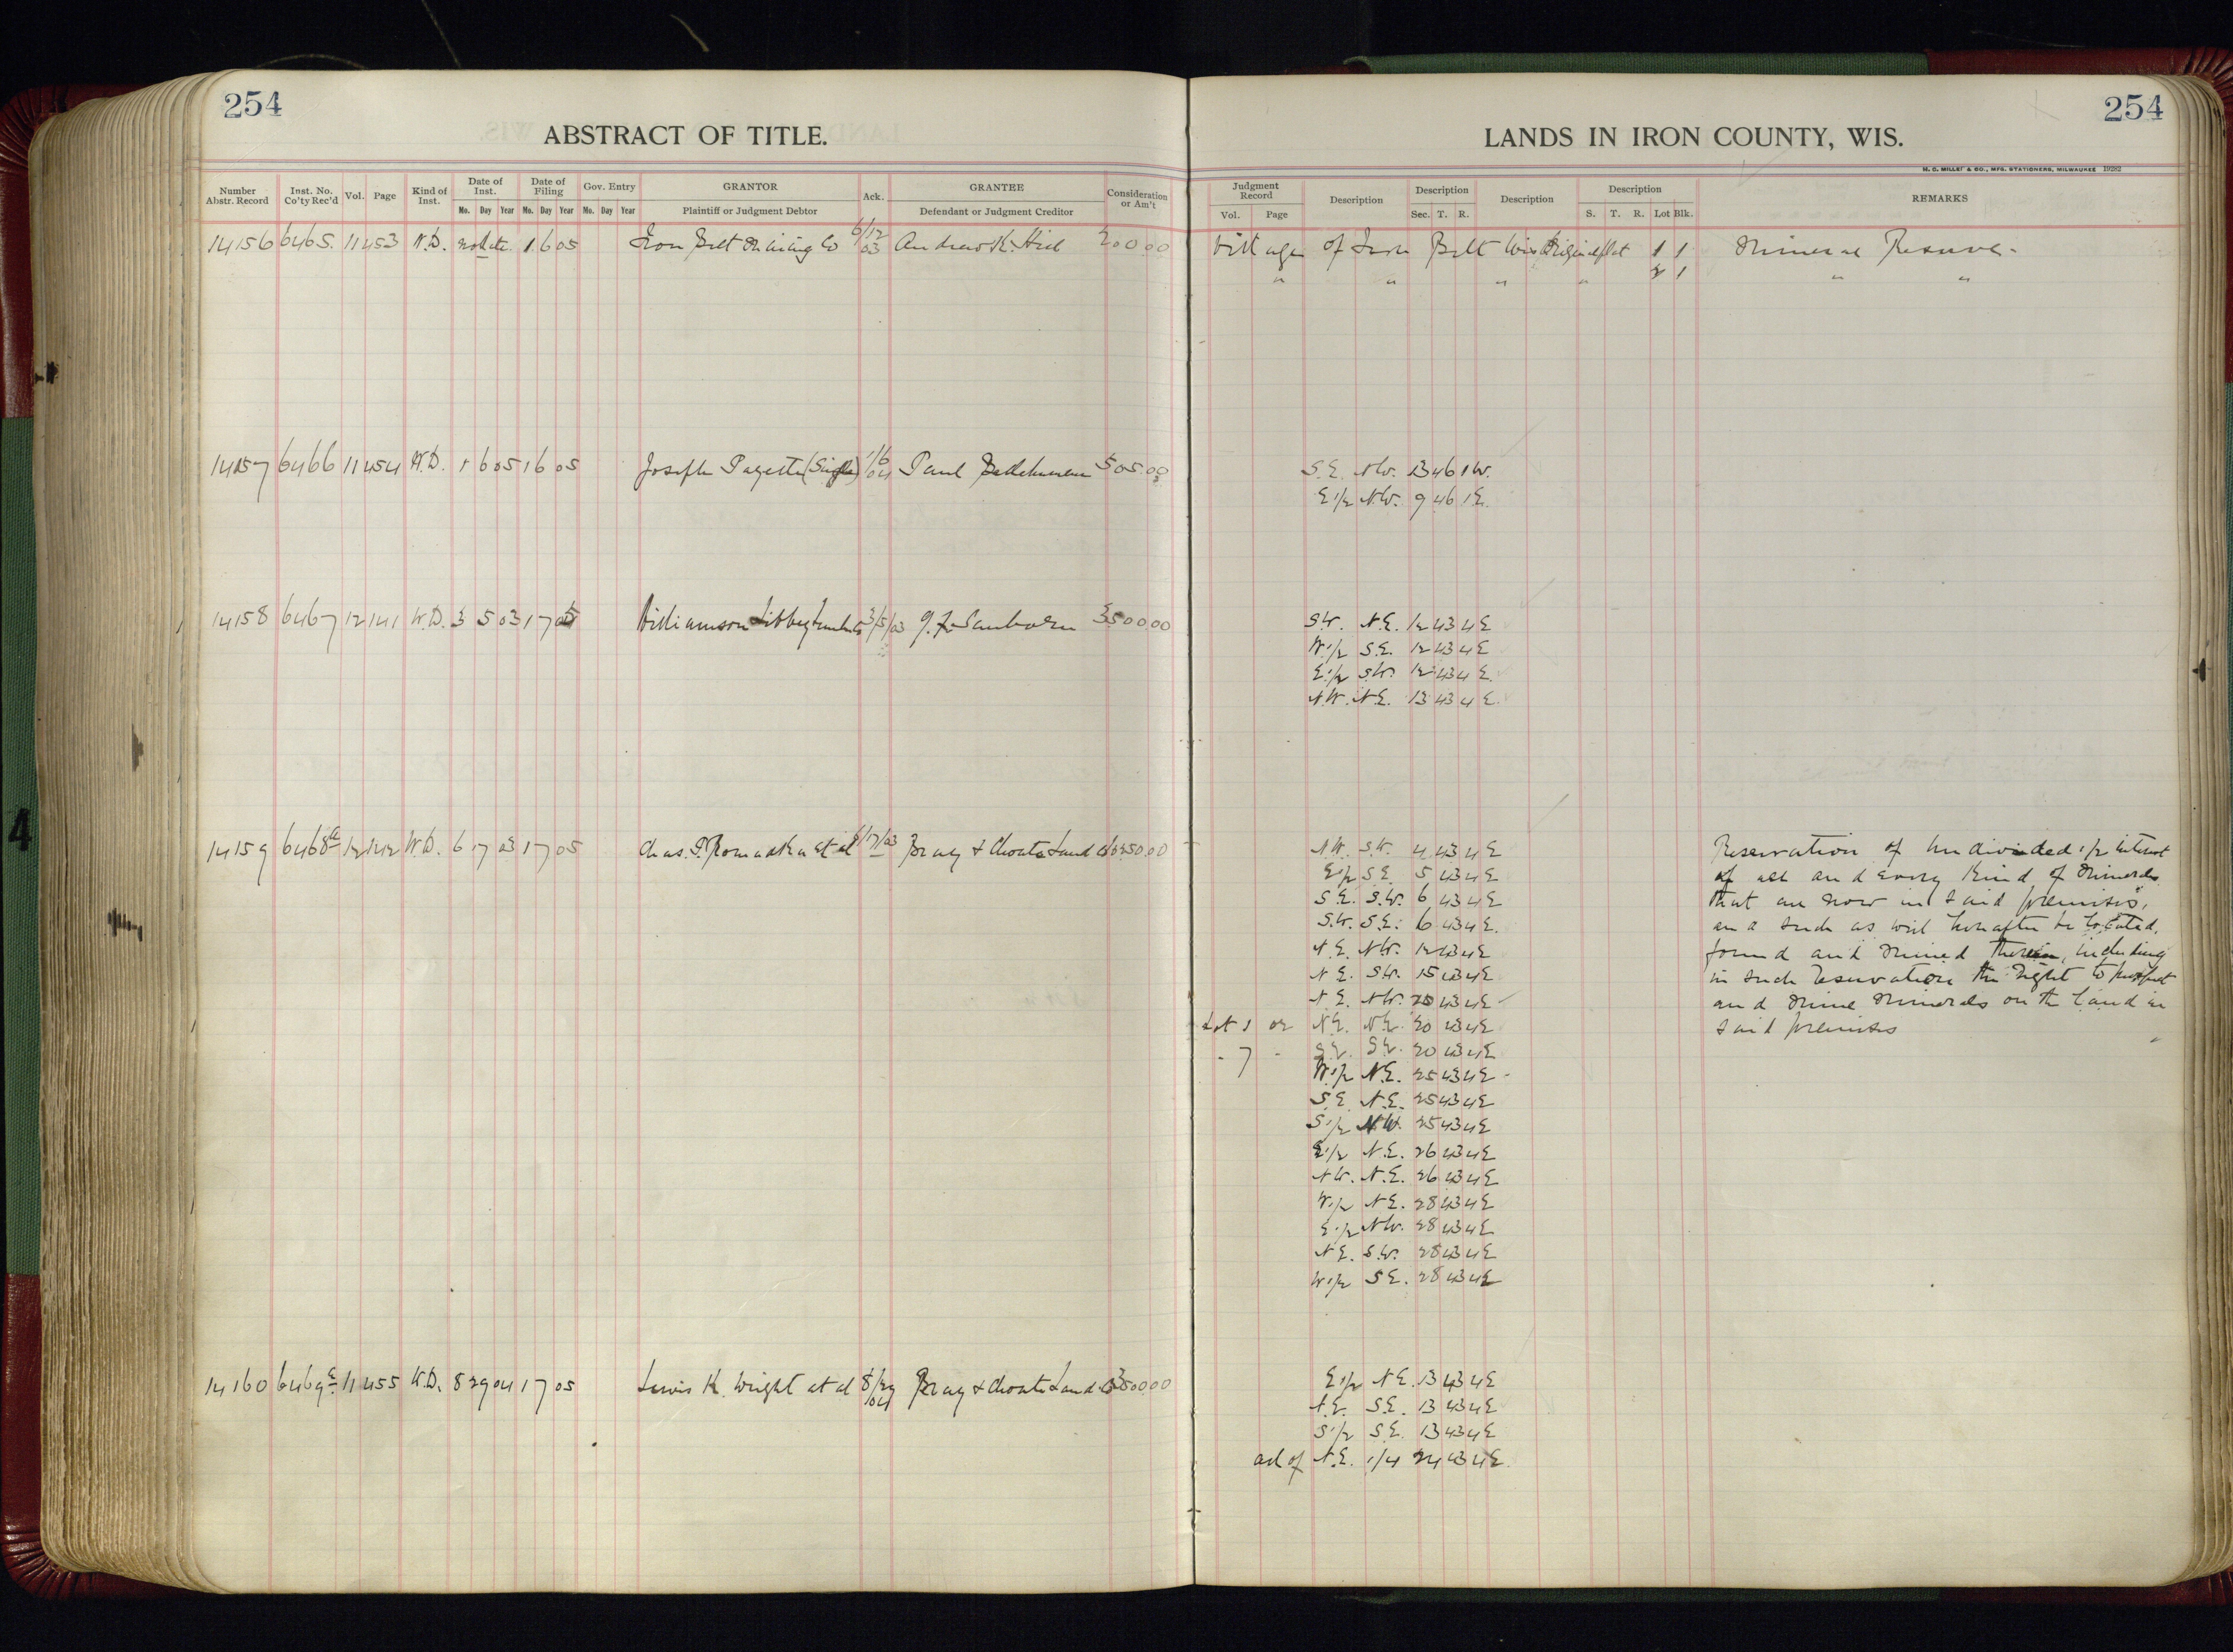 254
254
ABSTRACT OF TITLE.
LANDS IN IRON COUNTY, WIS.
H. C. MILLER & CO., MFG. STATIONERS, MILWAUKEE 1928
Number Abstr. Record Inst. No. Co'ty Rec'd Vol. Page Kind of Inst. Date of Inst. Mo. Day Year Date of Filing Mo. Day Year Gov. Entry Mo. Day Year GRANTOR Plaintiff or Judgment Debtor Ack. GRANTEE Defendant or Judgment Creditor Consideration or Am't
Judgment Record Vol. Page Description Description Sec. T. R. Description Description S. T. R. Lot Blk. REMARKS
14156 6465. 11 453 W.D. no date 1 6 05 Iron Belt Mining Co 6/12/03 Andrew K. Hill 200.00 Village of Iron Belt Wis Original Plat 1 1 Mineral Reserve.
" " " " 2 1 " "
14157 6466 11 454 W.D. 1 6 05 1 6 05 Joseph Payette (Single) 1/6/04 Paul 505.00 S.E. N.W. 13 46 1 W.
E 1/2 N.W. 9 46 1 E.
14158 6467 12 141 W.D. 3 5 03 1 7 05 Williamson Libbey Lumb. Co 3/5/03 G. F. Sanborn 3500.00 S.W. N.E. 12 43 4 E
W 1/2 S.E. 12 43 4 E
E 1/2 S.W. 12 43 4 E.
N.W. N.E. 13 43 4 E.
14159 6468 a 12 142 W.D. 6 17 03 1 7 05 Chas. P. Romadka et al 6/17/03 Bray & Choate Land Co 6250.00 N.W. S.W. 4 43 4 E Reservation of undivided 1/2 interest
E 1/2 S E 5 43 4 E of all and every kind of Minerals
S.E. S.W. 6 43 4 E that are now in said premises,
S.W. S.E. 6 43 4 E. and such as will hereafter be located,
N.E. N.W. 12 43 4 E found and mined therein, including
N.E. S.W. 15 43 4 E in such reservation the right to prospect
N.E. N.W. 20 43 4 E and mine minerals on the land in
Lot 1 or N.E. N.E. 20 43 4 E said premises
" 7 " S.E. S.E. 20 43 4 E
W 1/2 N.E. 25 43 4 E
S.E. N.E. 25 43 4 E
S 1/2 N.W. 25 43 4 E
E 1/2 N.E. 26 43 4 E
N.W. N.E. 26 43 4 E
W 1/2 N.E. 28 43 4 E
E 1/2 N.W. 28 43 4 E
N.E. S.W. 28 43 4 E
W 1/2 S.E. 28 43 4 E
14160 6469 11 455 W.D. 8 29 04 1 7 05 Lewis K. Wright et al 8/29/04 Bray & Choate Land Co 3800.00 E 1/2 N.E. 13 43 4 E
N.E. S.E. 13 43 4 E
S 1/2 S.E. 13 43 4 E
all of N.E. 1/4 24 43 4 E.
4